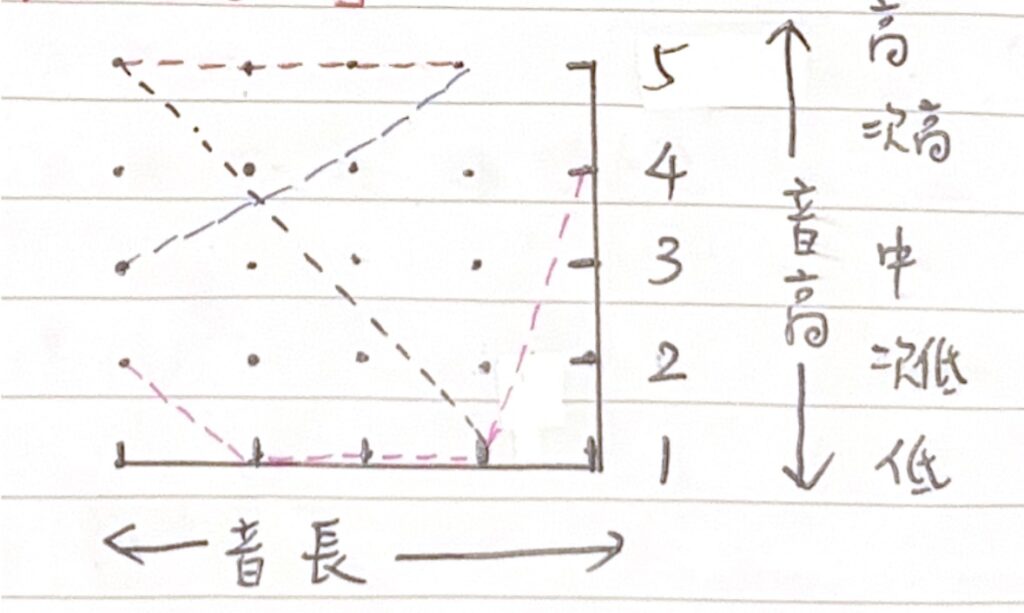 高
5
次高
4
音高
3
中
2
次低
1
低
音長